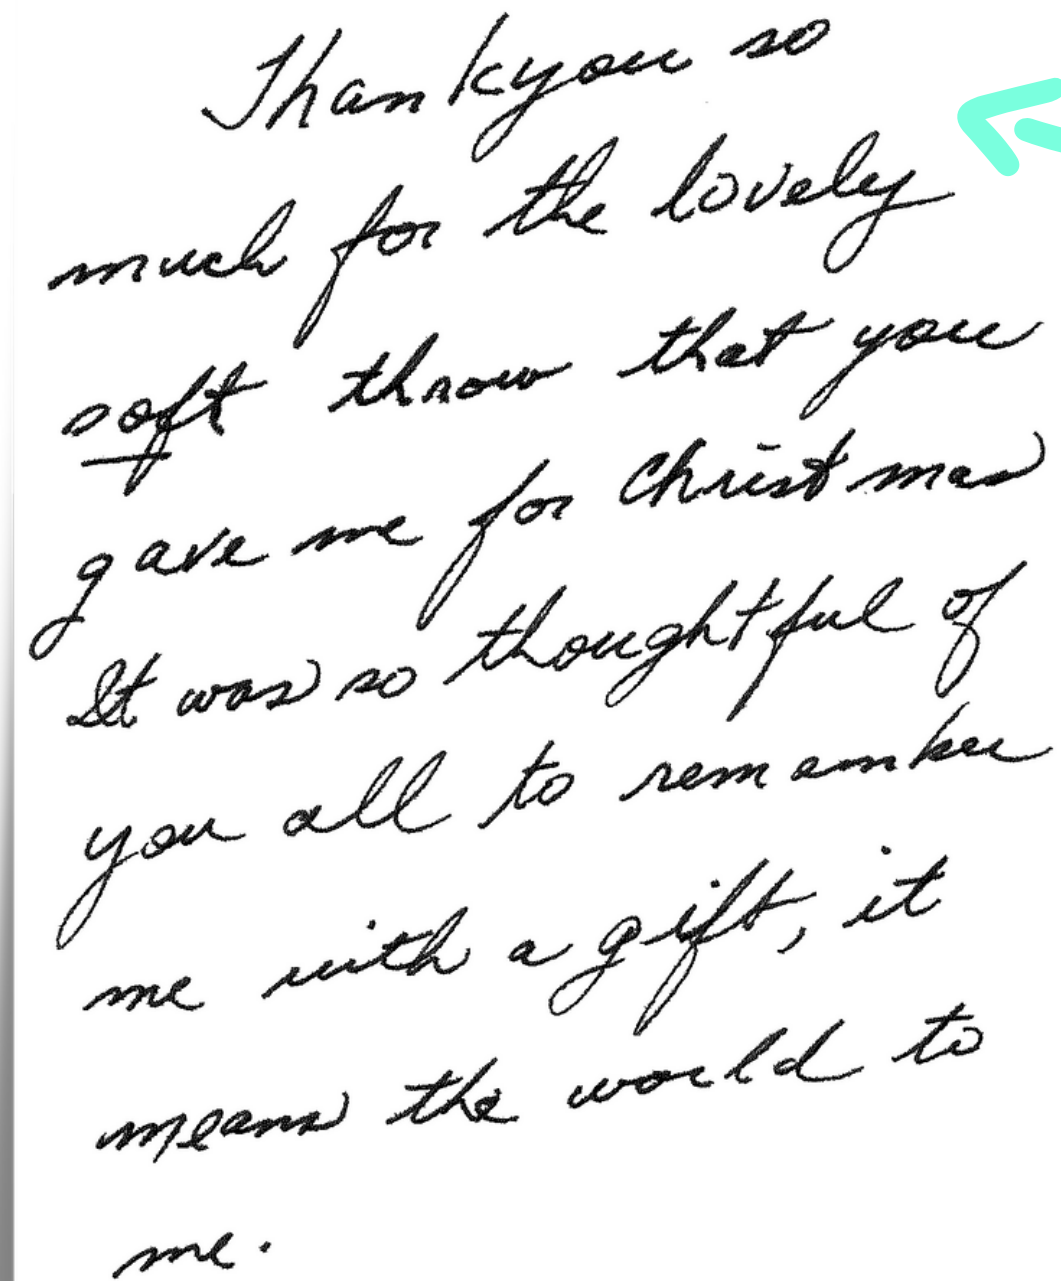 Thankyou so
much for the lovely
soft throw that you
gave me for Christmas
It was so thoughtful of
you all to remember
me with a gift, it
means the world to
me.